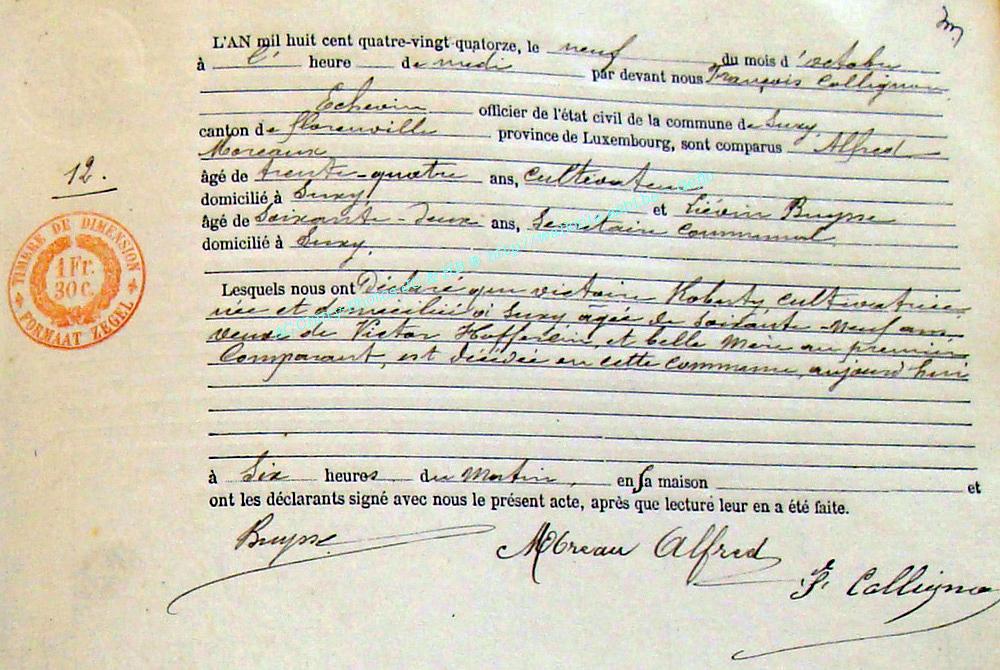 L'AN mil huit cent quatre-vingt-quatorze, le neuf du mois d'octobre
à heure de medi par devant nous François Collignon
Echevin officier de l'état civil de la commune de Suxy
canton de florenville province de Luxembourg, sont comparus Alfred
Moreaux
âgé de trente-quatre ans, Cultivateur
domicilié à Suxy et Liévin Buysse
âgé de Soixante-deux ans, Secretaire Communal
domicilié à Suxy.
Lesquels nous ont Déclaré que victoire Roberty, Cultivatrice,
née et domiciliée à Suxy âgée de Soixante-Neuf ans
veuve de Victor et belle Mère au premier
Comparant, est décédée en cette commune, aujourd'hui
à Six heures du Matin, en sa maison et
ont les déclarants signé avec nous le présent acte, après que lecture leur en a été faite.
Buysse
Moreau Alfred
F Collignon
12.
TIMBRE DE DIMENSION
1 Fr.
30 C.
FORMAAT ZEGEL